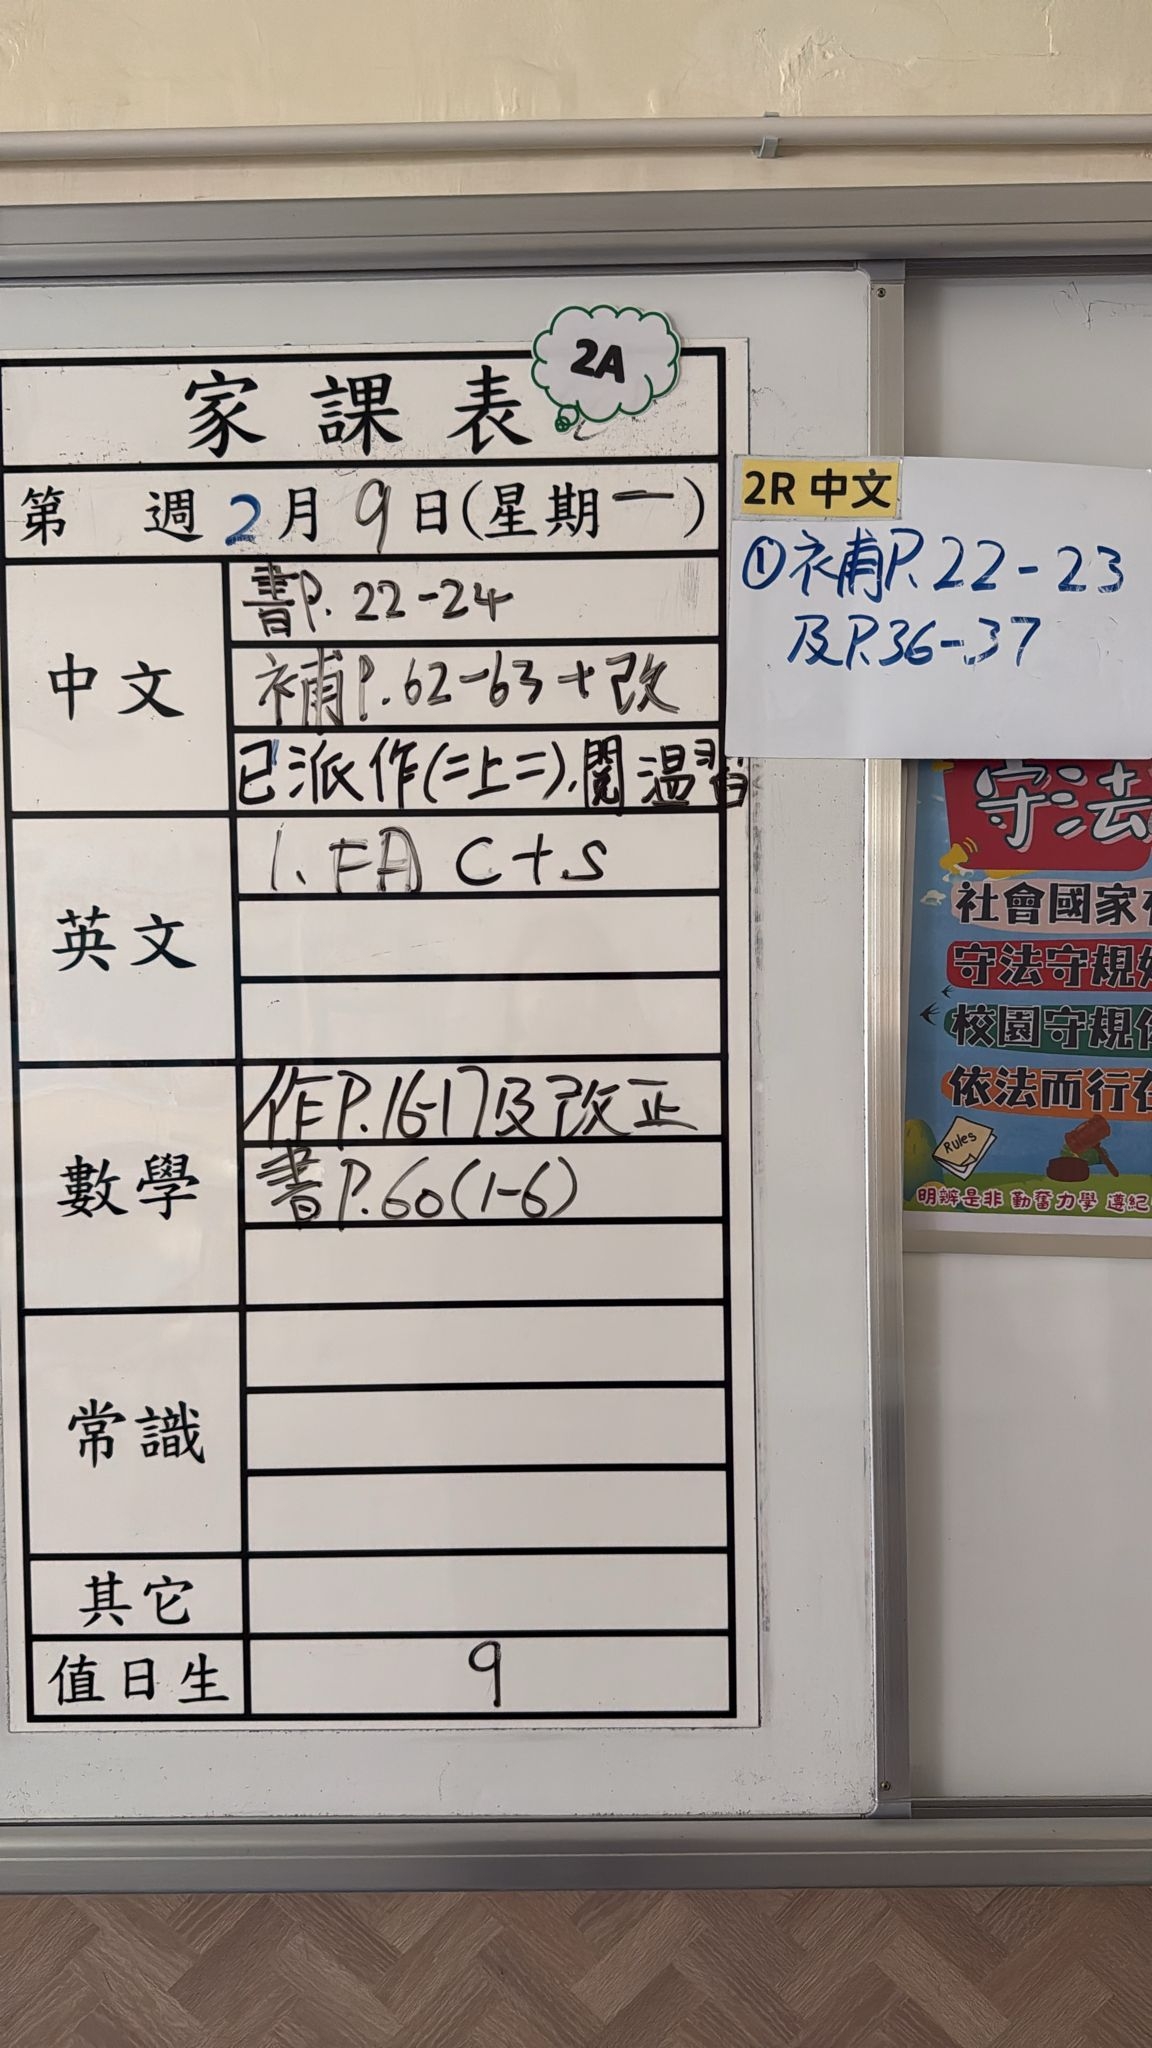 2A
家課表
第 週 2月9日(星期一)
中文
書P.22-24
補P.62-63+改
已派作(二上二),閱溫習
英文
1. FA C+S
數學
作P.16-17及改正
書P.60(1-6)
常識
其它
值日生
9
2R 中文
①補P.22-23
及P.36-37
守法
社會國家
守法守規
校園守規
依法而行
Rules
明辨是非 勤奮力學 遵紀